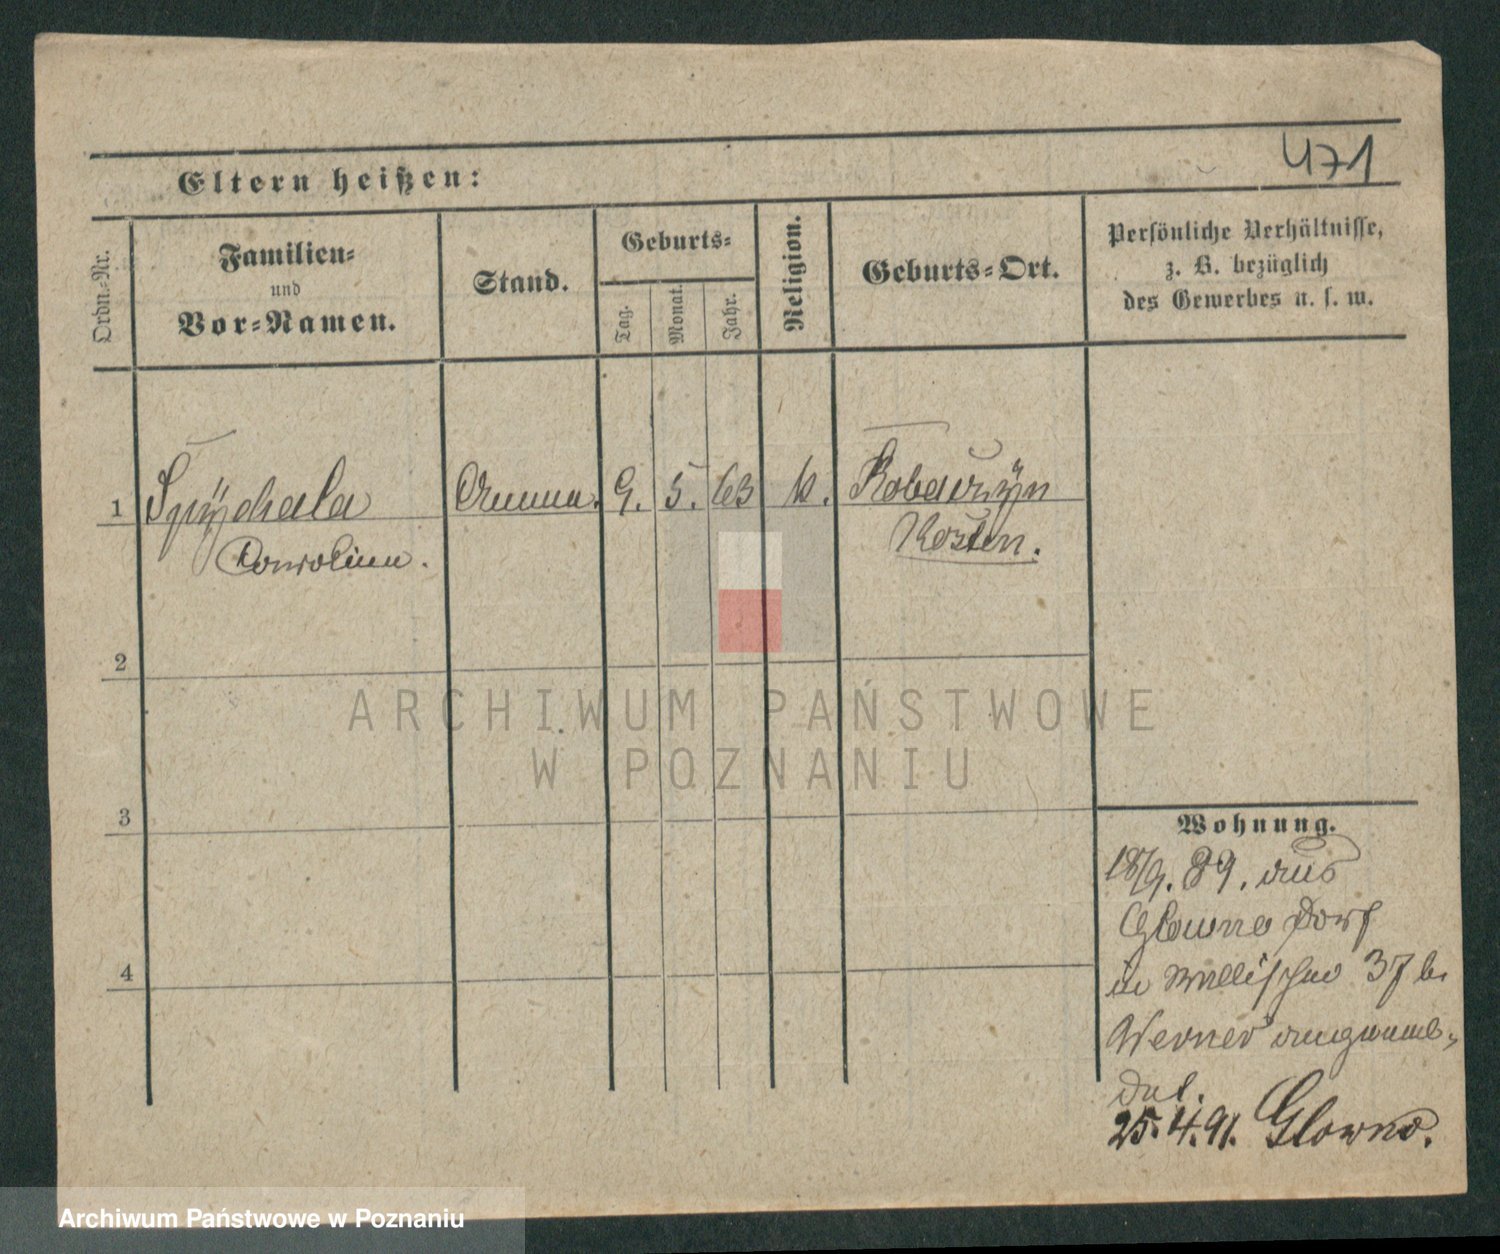 471
Eltern heißen:
Ordn.-Nr.
Familien-
und
Vor-Namen.
Stand.
Geburts-
Tag.
Monat.
Jahr.
Religion.
Geburts-Ort.
Persönliche Verhältnisse,
z. B. bezüglich
des Gewerbes u. s. w.
1
Spÿchala
Amme. 9. 5. 63 k.
Kosten.
2
3
4
ARCHIWUM PAŃSTWOWE
W POZNANIU
Wohnung.
18/9. 89. aus
Glowno Dorf
in Wallischei 37 b.
Werner angemel-
det.
25.4.91. Glowno.
Archiwum Państwowe w Poznaniu